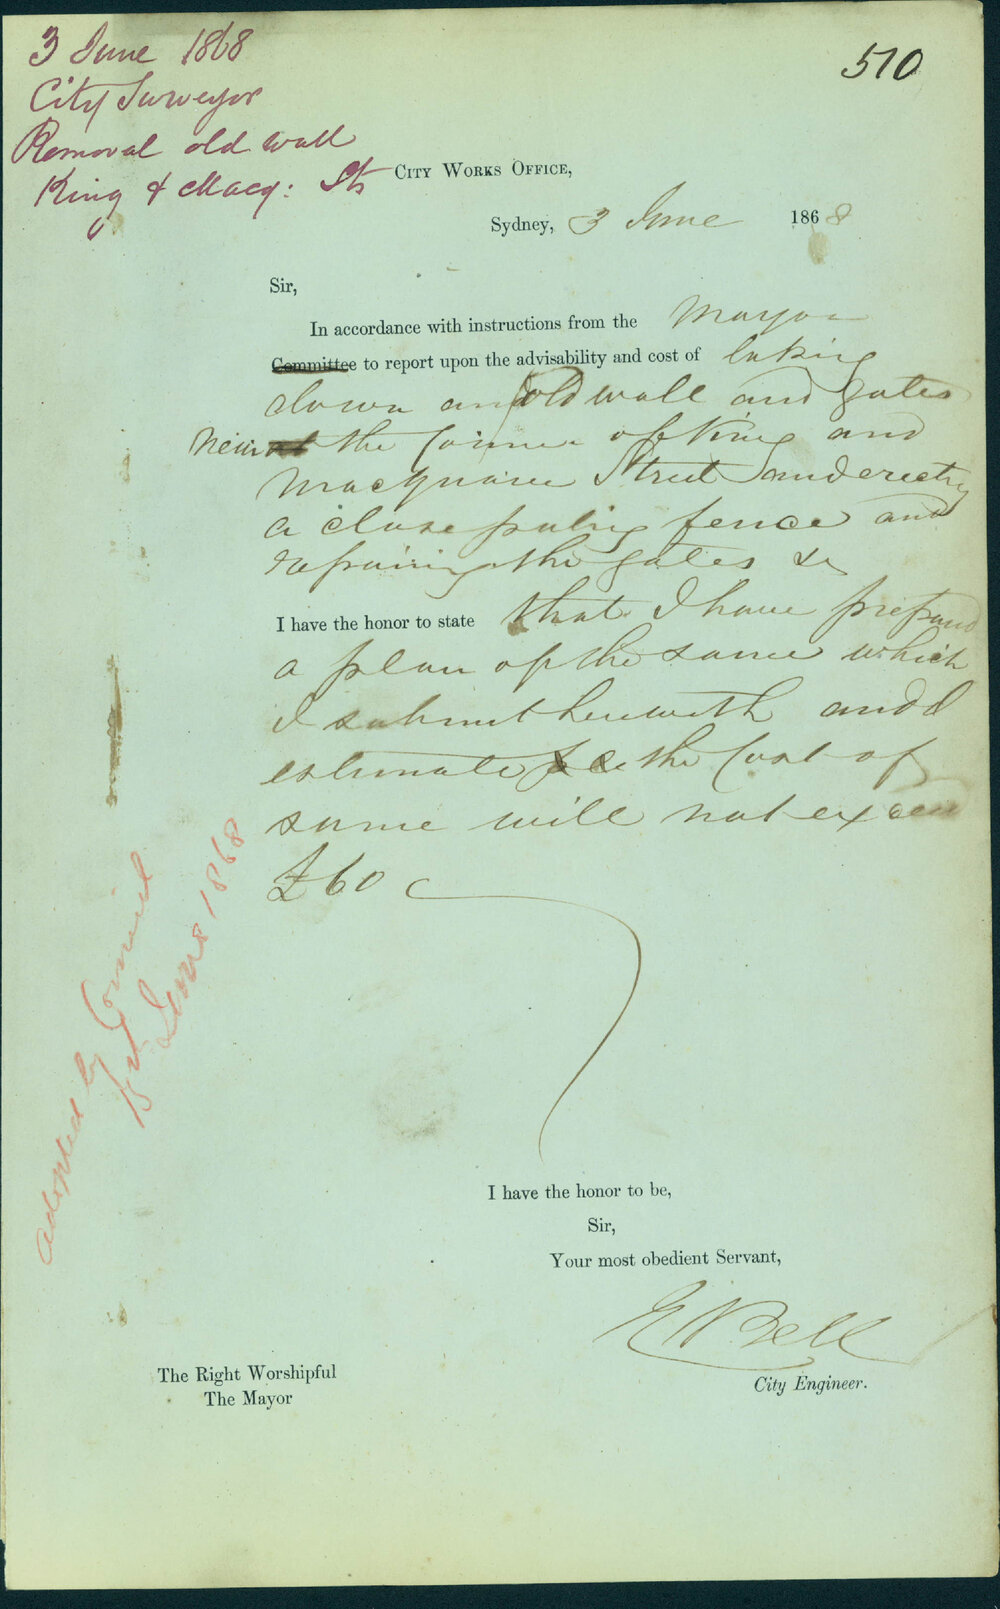 3 June 1868
City Surveyor
Removal old wall
King & Macq: Sts
510
CITY WORKS OFFICE,
Sydney, 3 June 1868
Sir,
In accordance with instructions from the Mayor
Committee to report upon the advisability and cost of taking
down an old wall and gates
near the corner of King and
Macquarie Street and erecting
a close paling fence and
repairing the gates &c
I have the honor to state that I have prepared
a plan of the same which
I submit herewith and
estimate the cost of
same will not exceed
£60
adopted by Council
15th June 1868
I have the honor to be,
Sir,
Your most obedient Servant,
E Bell
City Engineer.
The Right Worshipful
The Mayor